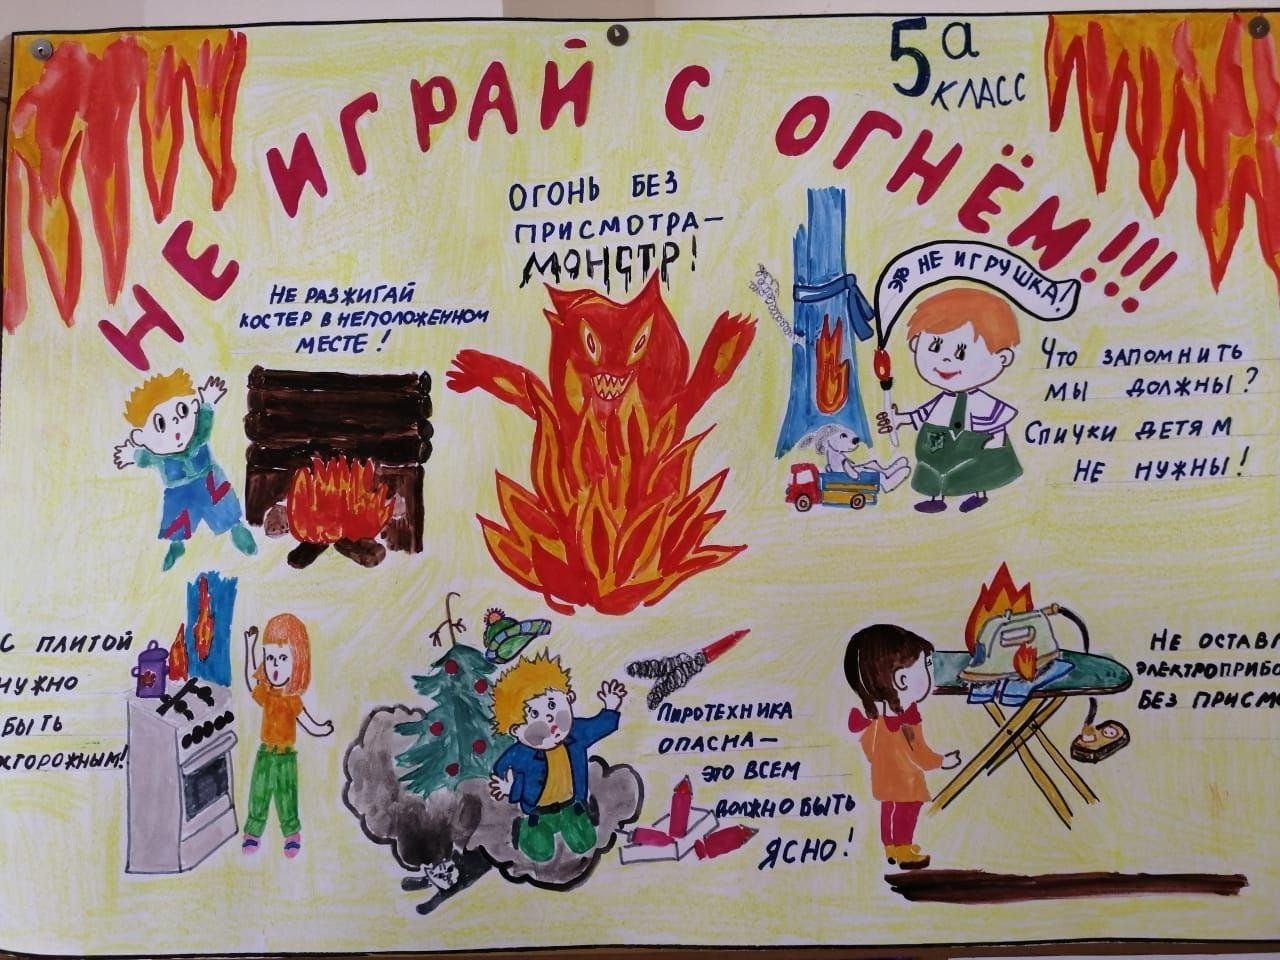 5а
КЛАСС
НЕ ИГРАЙ С ОГНЁМ!!!
ОГОНЬ БЕЗ
ПРИСМОТРА-
МОНСТР!
НЕ РАЗЖИГАЙ
КОСТЕР В НЕПОЛОЖЕННОМ
МЕСТЕ!
ЭТО НЕ ИГРУШКА!
ЧТО ЗАПОМНИТЬ
МЫ ДОЛЖНЫ?
СПИЧКИ ДЕТЯМ
НЕ НУЖНЫ!
С ПЛИТОЙ
НУЖНО
БЫТЬ
СТОРОЖНЫМ!
ПИРОТЕХНИКА
ОПАСНА-
ЭТО ВСЕМ
ДОЛЖНО БЫТЬ
ЯСНО!
НЕ ОСТАВЛ
ЭЛЕКТРОПРИБО
БЕЗ ПРИСМ